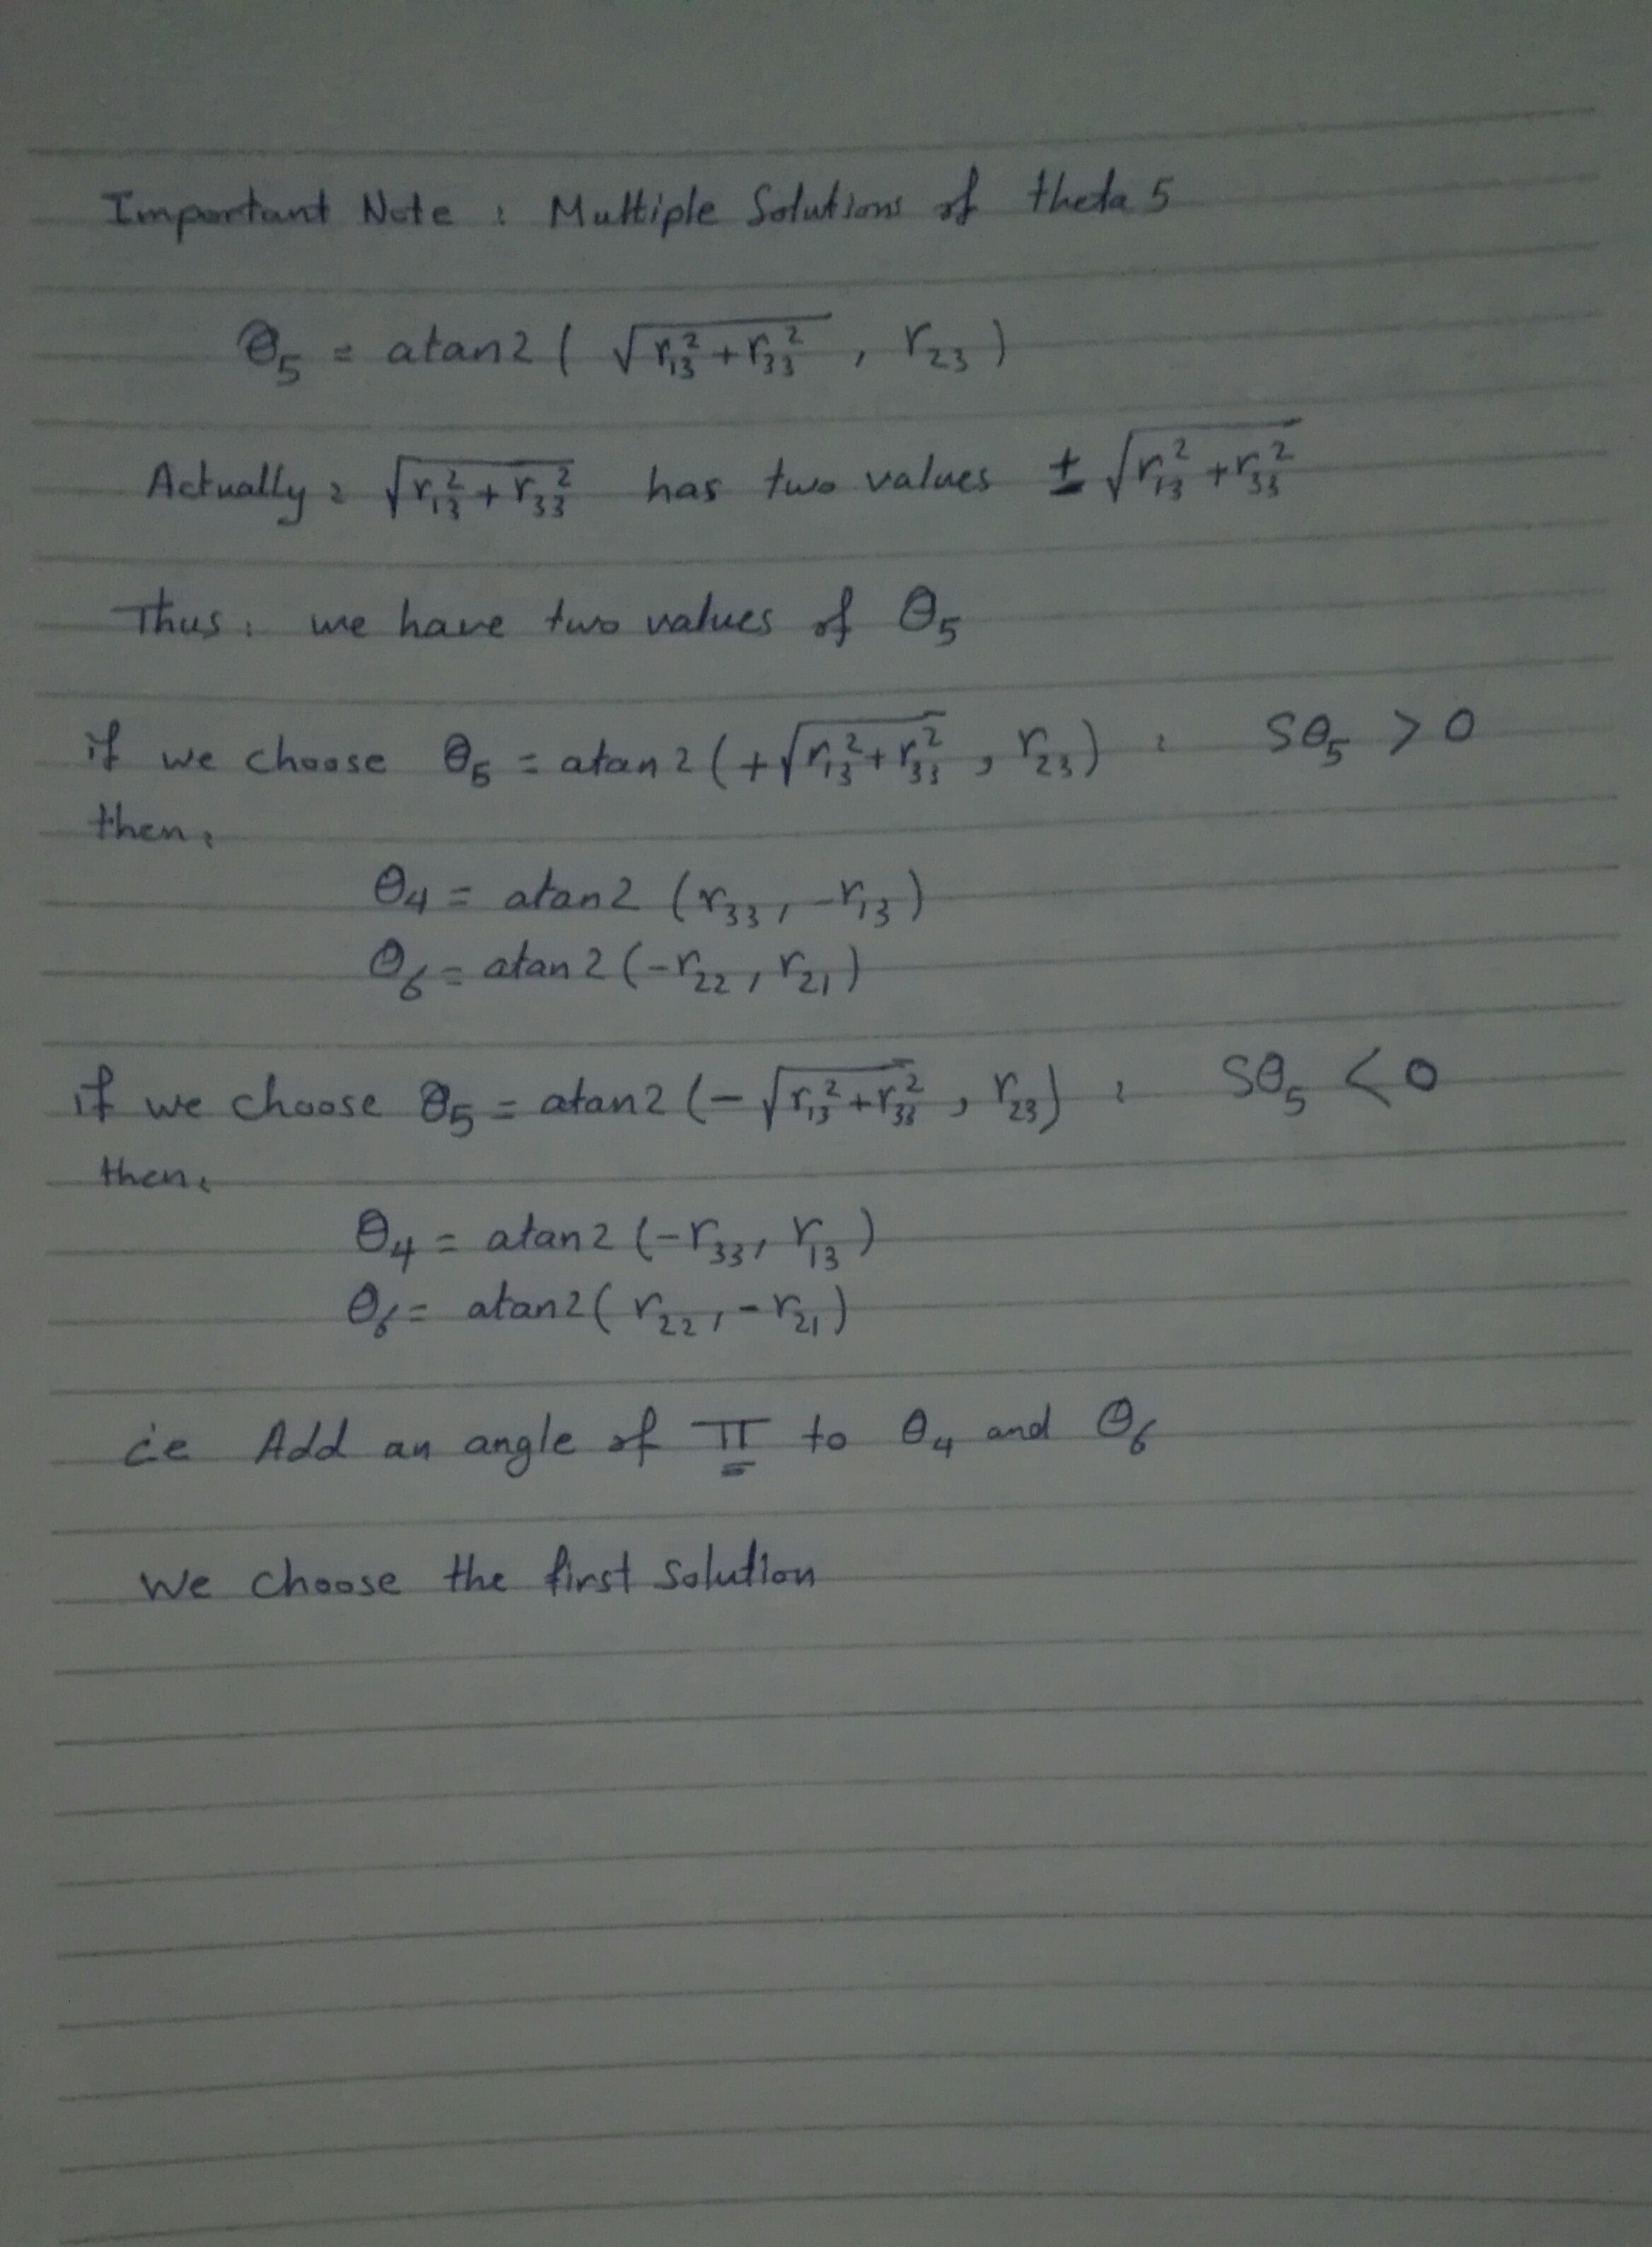 Important Note : Multiple Solutions of theta 5
θ₅ = atan2 ( √(r₁₃² + r₃₃²) , r₂₃ )
Actually : √(r₁₃² + r₃₃²) has two values ± √(r₁₃² + r₃₃²)
Thus : we have two values of θ₅
if we choose θ₅ = atan2 (+√(r₁₃² + r₃₃²) , r₂₃) : sθ₅ > 0
then :
θ₄ = atan2 (r₃₃, -r₁₃)
θ₆ = atan2 (-r₂₂, r₂₁)
if we choose θ₅ = atan2 (-√(r₁₃² + r₃₃²) , r₂₃) : sθ₅ < 0
then :
θ₄ = atan2 (-r₃₃, r₁₃)
θ₆ = atan2 (r₂₂, -r₂₁)
i.e Add an angle of π to θ₄ and θ₆
We choose the first solution